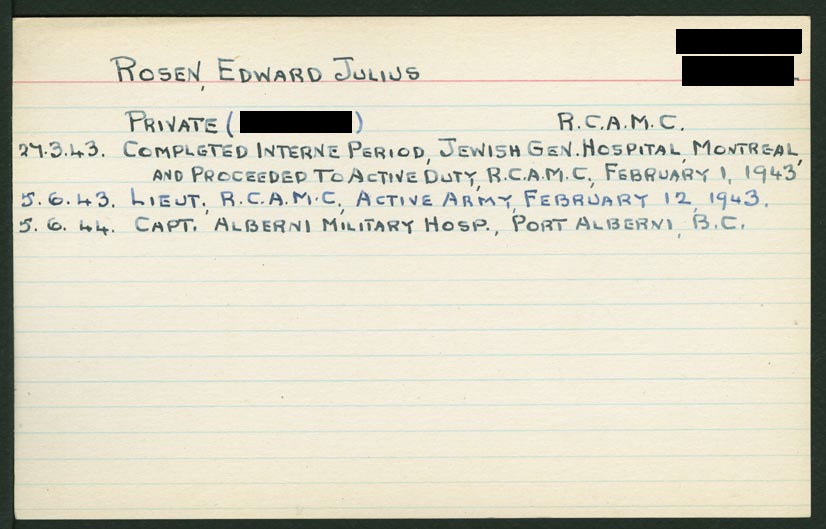 ROSEN, EDWARD JULIUS
PRIVATE ( ) R.C.A.M.C.
27.3.43. COMPLETED INTERNE PERIOD, JEWISH GEN. HOSPITAL, MONTREAL,
AND PROCEEDED TO ACTIVE DUTY, R.C.A.M.C., FEBRUARY 1, 1943
5.6.43. LIEUT., R.C.A.M.C., ACTIVE ARMY, FEBRUARY 12, 1943.
5.6.44. CAPT. ALBERNI MILITARY HOSP., PORT ALBERNI, B.C.